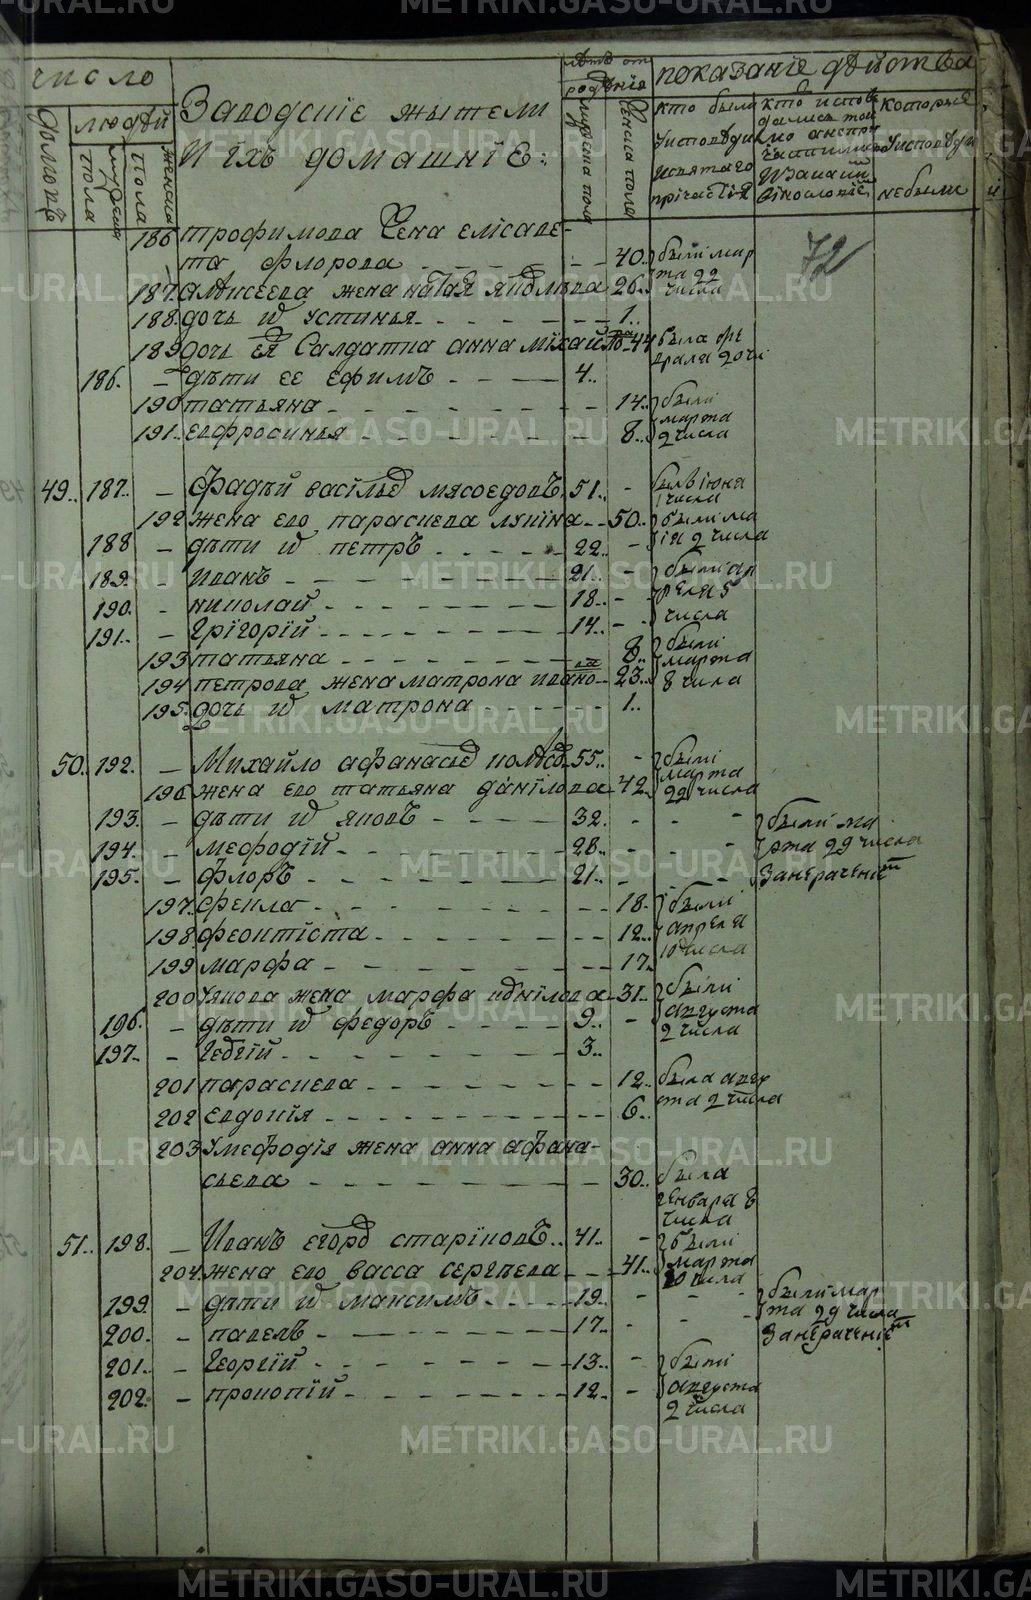 число
людей
Заводскіе жытели
и ихъ домашніе:
лѣта от рождѣнія
показаніе дѣйства
мужеска пола
женска пола
мужеска пола
женска пола
кто были
у исповѣди
и святаго
прічастія
кто испове
дались токмо
а не
причастились
и за каким
винословіем
которые
у исповѣди
не были
72
186 трофимова жена елісаве-
та флорова 40.. были мар
та 29
числа
187. Алексеева жена 26..
188. дочь и устинья 1..
189 дочь ея Салдатка анна міхайлова 44 была фе
враля 2 числ
186. дѣти ее ефимъ 4..
190 татьяна 14.. были
марта
2 числа
191.. евфросинья 8..
49.. 187.. Фадѣй васільев мясоедовъ 51.. был іюня
1 числа
192 жена его параскева лукіна 50.. были ма
ія 2 числа
188 дѣти и петръ 22..
189. Иванъ 21.. были ап
реля 5
числа
190. николай 18..
191.. Грігорій 14..
193 татьяна 8.. были
марта
8 числа
194 петрова жена матрона ивано ва 23..
195. дочь и матрона 1..
50.. 192. Михайло афанасьев 55.. были
марта
29 числа
196 жена его татьяна данілова 42..
193. дѣти и яковъ 32. были ма
рта 29 числа
194. мефодій 28..
195. флоръ 21.. За некрачениемъ
197. фекла 18. были
апреля
10 числа
198. феоктіста 12..
199 марфа 17.
200 У якова жена марфа 31.. были
августа
2 числа
196. дѣти и федоръ 9..
197. 3..
201 параскева 12.. была авгу
ста 2 числа
202 евдокія 6..
203 У мефодія жена анна афана-
сьева 30.. была
генваря 8
числа
51.. 198. Иванъ егоров старіковъ 41.. были
марта
10 числа
204. жена его васса сергѣева 41..
199. дѣти и максимъ 19.. были мар
та 29 числа
200. павелъ 17..
201.. Георгій 13.. были
августа
2 числа
202. прокопій 12..
METRIKI.GASO-URAL.RU